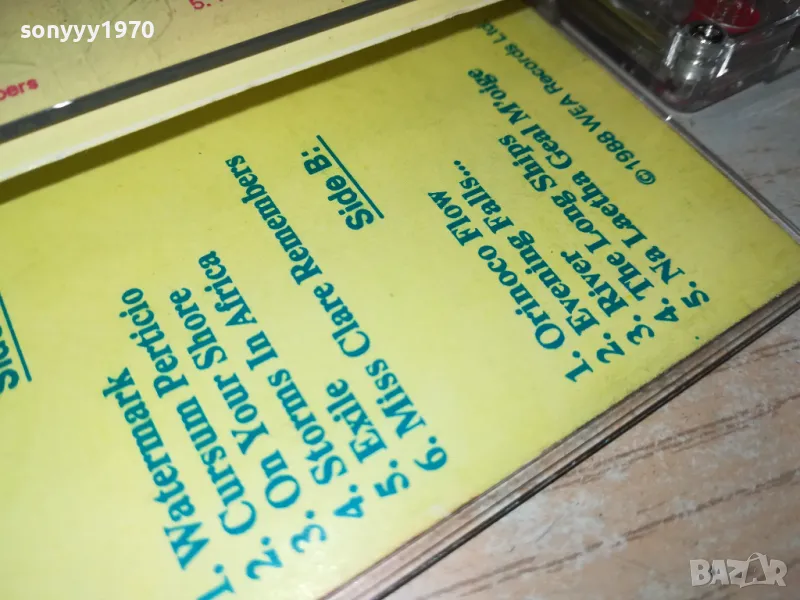 sonyyy1970
5.
bers
Side
1. Watermark
2. Cursum Perticio
3. On Your Shore
4. Storms In Africa
5. Exile
6. Miss Clare Remembers
Side B:
1. Orinoco Flow
2. Evening Falls...
3. River
4. The Long Ships
5. Na Laetha Geal M'oige
©1988 WEA Records Ltd.
BAZAR